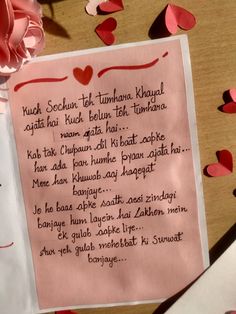 Kuch Sochun toh tumhara Khayal
ajata hai Kuch bolun toh tumhara
naam ajata hai...
Kab tak Chupaun dil Ki baat aapke
har ada par humhe pyaar ajata hai...
Mere har Khwaab aaj haqeqat
banjaye...
Jo ho baas apke saath aesi zindagi
banjaye hum layein hai Lakhon mein
ek gulab aapke liye...
Aur yeh gulab mohobbat ki Surwat
banjaye...